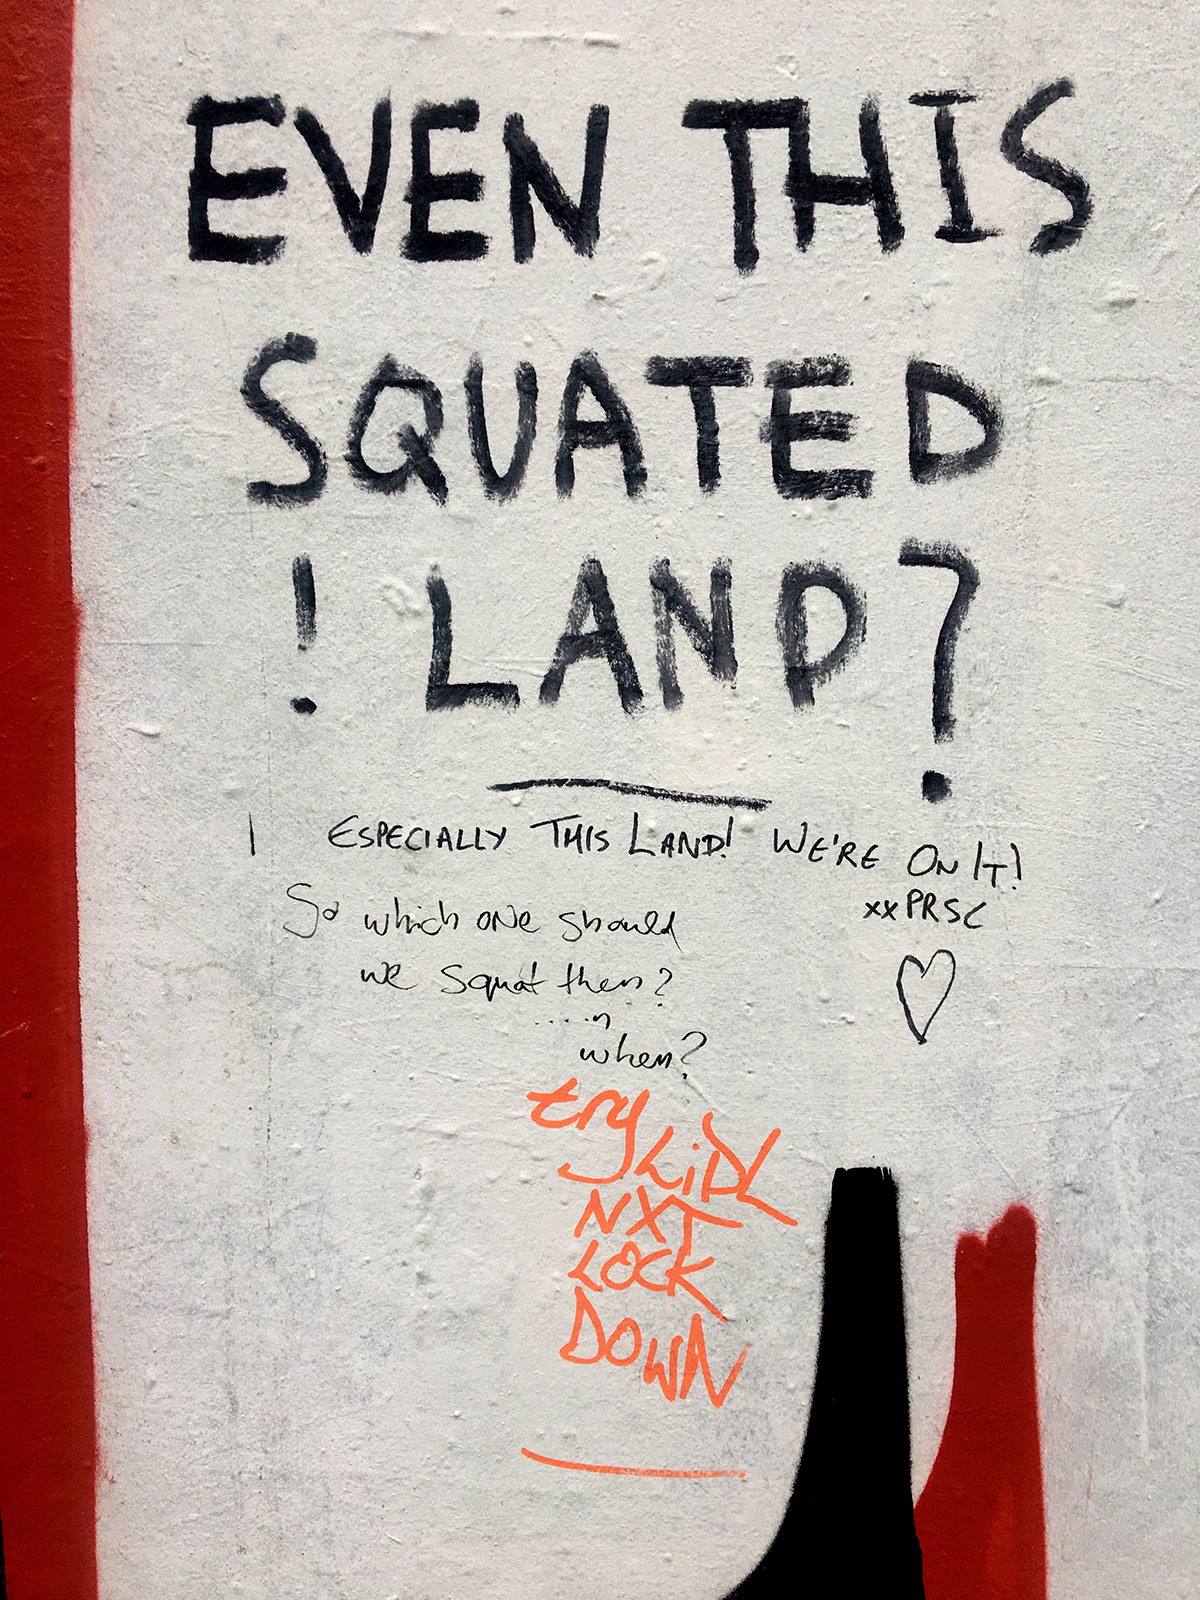 EVEN THIS
SQUATED
! LAND?
ESPECIALLY THIS LAND! WE'RE ON IT!
xxPRSC
So which one should
we squat then?
....n
when?
try LiDL
NXT
LOCK
DOWN